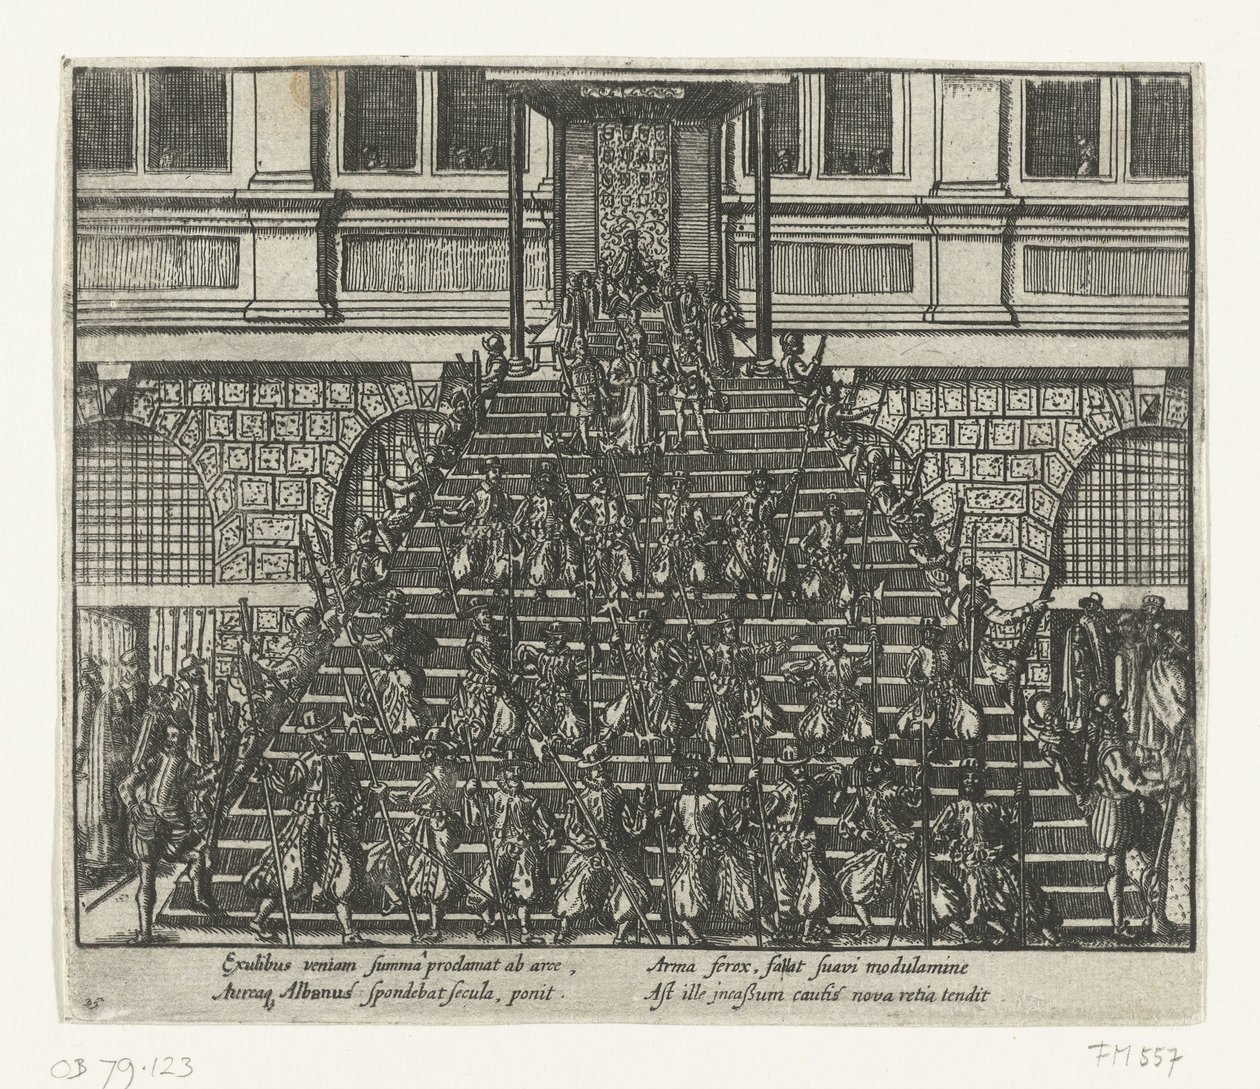 Exulibus veniam summâ prodamat ab arce,
Aureaq, Albanus spondebat secula, ponit.
Arma ferox, fallat suavi modulamine
Ast ille incaßum cautis nova retia tendit
35
OB 79.123
FM 557